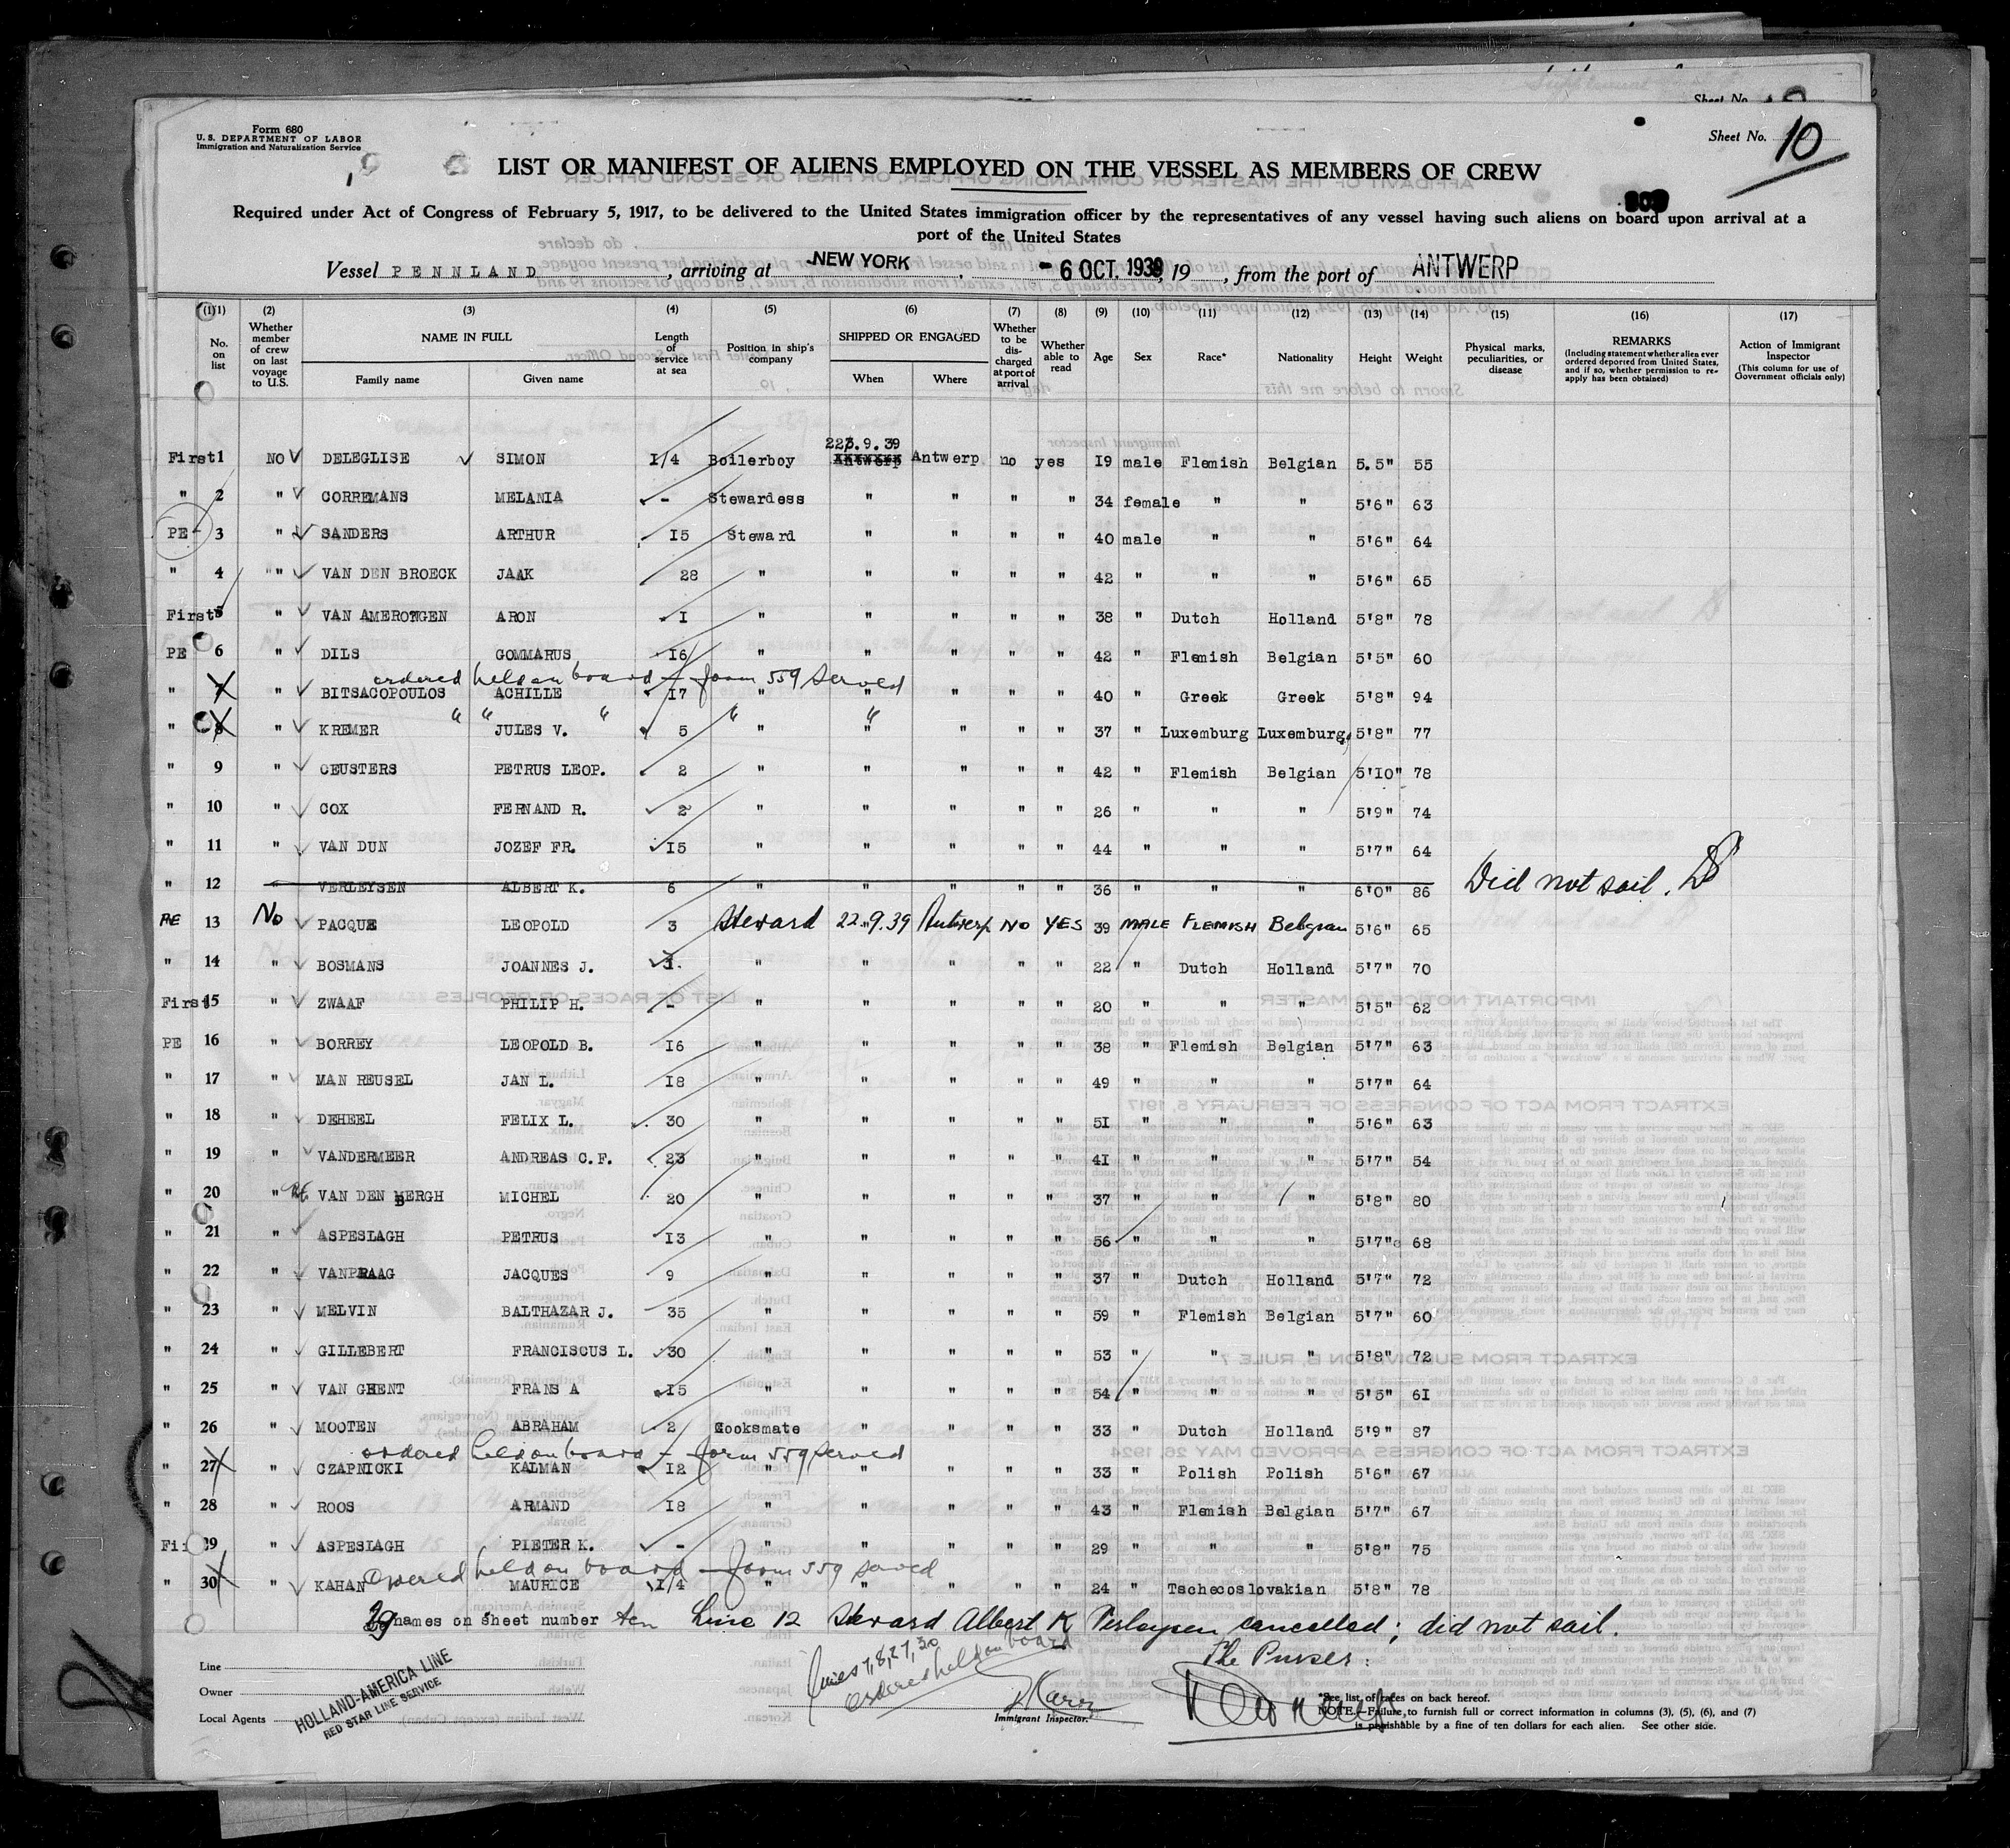 Sheet No.
Form 680
U. S. DEPARTMENT OF LABOR
Immigration and Naturalization Service
Sheet No. 10
LIST OR MANIFEST OF ALIENS EMPLOYED ON THE VESSEL AS MEMBERS OF CREW
Required under Act of Congress of February 5, 1917, to be delivered to the United States immigration officer by the representatives of any vessel having such aliens on board upon arrival at a
port of the United States
Vessel PENNLAND, arriving at NEW YORK, - 6 OCT. 1939, 19 , from the port of ANTWERP
(1) (2) (3) (4) (5) (6) (7) (8) (9) (10) (11) (12) (13) (14) (15) (16) (17)
No. on list Whether member of crew on last voyage to U.S. NAME IN FULL Family name Given name Length of service at sea Position in ship's company SHIPPED OR ENGAGED When Where Whether to be discharged at port of arrival Whether able to read Age Sex Race* Nationality Height Weight Physical marks, peculiarities, or disease REMARKS (Including statement whether alien ever ordered deported from United States, and if so, whether permission to reapply has been obtained) Action of Immigrant Inspector (This column for use of Government officials only)
First 1 NO DELEGLISE SIMON 1/4 Boilerboy 22.9.39 Antwerp no yes 19 male Flemish Belgian 5.5" 55
" 2 " CORREMANS MELANIA - Stewardess " " " " 34 female " " 5'6" 63
PE 3 " SANDERS ARTHUR 15 Steward " " " " 40 male " " 5'6" 64
" 4 " VAN DEN BROECK JAAK 28 " " " " " 42 " " " 5'6" 65
First 5 " VAN AMERONGEN ARON 1 " " " " " 38 " Dutch Holland 5'8" 78
PE 6 " DILS GOMMARUS 16 " " " " " 42 " Flemish Belgian 5'5" 60
ordered held on board - form 559 served
" 7 " BITSACOPOULOS ACHILLE 17 " " " " " 40 " Greek Greek 5'8" 94
" " " " "
" 8 " KREMER JULES V. 5 " " " " " 37 " Luxemburg Luxemburg 5'8" 77
" 9 " CEUSTERS PETRUS LEOP. 2 " " " " " 42 " Flemish Belgian 5'10" 78
" 10 " COX FERNAND R. 2 " " " " " 26 " " " 5'9" 74
" 11 " VAN DUN JOZEF FR. 15 " " " " " 44 " " " 5'7" 64
" 12 VERLEYSEN ALBERT K. 6 " " " " " 36 " " " 6'0" 86 Did not sail.
PE 13 No PACQUE LEOPOLD 3 Steward 22.9.39 Antwerp NO YES 39 MALE FLEMISH Belgian 5'6" 65
" 14 " BOSMANS JOANNES J. 1. " " " " " 22 " Dutch Holland 5'7" 70
First 15 " ZWAAF PHILIP H. - " " " " " 20 " " " 5'5" 62
PE 16 " BORREY LEOPOLD B. 16 " " " " " 38 " Flemish Belgian 5'7" 63
" 17 " MAN REUSEL JAN L. 18 " " " " " 49 " " " 5'7" 64
" 18 " DEHEEL FELIX L. 30 " " " " " 51 " " " 5'6" 63
" 19 " VANDERMEER ANDREAS C.F. 23 " " " " " 41 " " " 5'7" 54
" 20 " VAN DEN BERGH MICHEL 20 " " " " " 37 " " " 5'8" 80
" 21 " ASPESLAGH PETRUS 13 " " " " " 56 " " " 5'7" 68
" 22 " VANPRAAG JACQUES 9 " " " " " 37 " Dutch Holland 5'7" 72
" 23 " MELVIN BALTHAZAR J. 35 " " " " " 59 " Flemish Belgian 5'7" 60
" 24 " GILLEBERT FRANCISCUS L. 30 " " " " " 53 " " " 5'8" 72
" 25 " VAN GHENT FRANS A 15 " " " " " 54 " " " 5'5" 61
" 26 " MOOTEN ABRAHAM 2 Cooksmate " " " " 33 " Dutch Holland 5'9" 87
ordered held on board - form 559 served
" 27 " CZAPNICKI KALMAN 12 " " " " " 33 " Polish Polish 5'6" 67
" 28 " ROOS ARMAND 18 " " " " " 43 " Flemish Belgian 5'7" 67
Fi 29 " ASPESLAGH PIETER K. - " " " " " 29 " " " 5'8" 75
Ordered held on board - form 559 served
" 30 " KAHAN MAURICE 1/4 " " " " " 24 " Tschecoslovakian 5'8" 78
29 names on sheet number ten Line 12 Steward Albert K Verleysen cancelled; did not sail.
Lines 7, 8, 27, 30
ordered held on board
The Purser:
Line
Owner
Local Agents
HOLLAND-AMERICA LINE
RED STAR LINE SERVICE
Immigrant Inspector.
*See list of races on back hereof.
NOTE.—Failure to furnish full or correct information in columns (3), (5), (6), and (7)
is punishable by a fine of ten dollars for each alien. See other side.